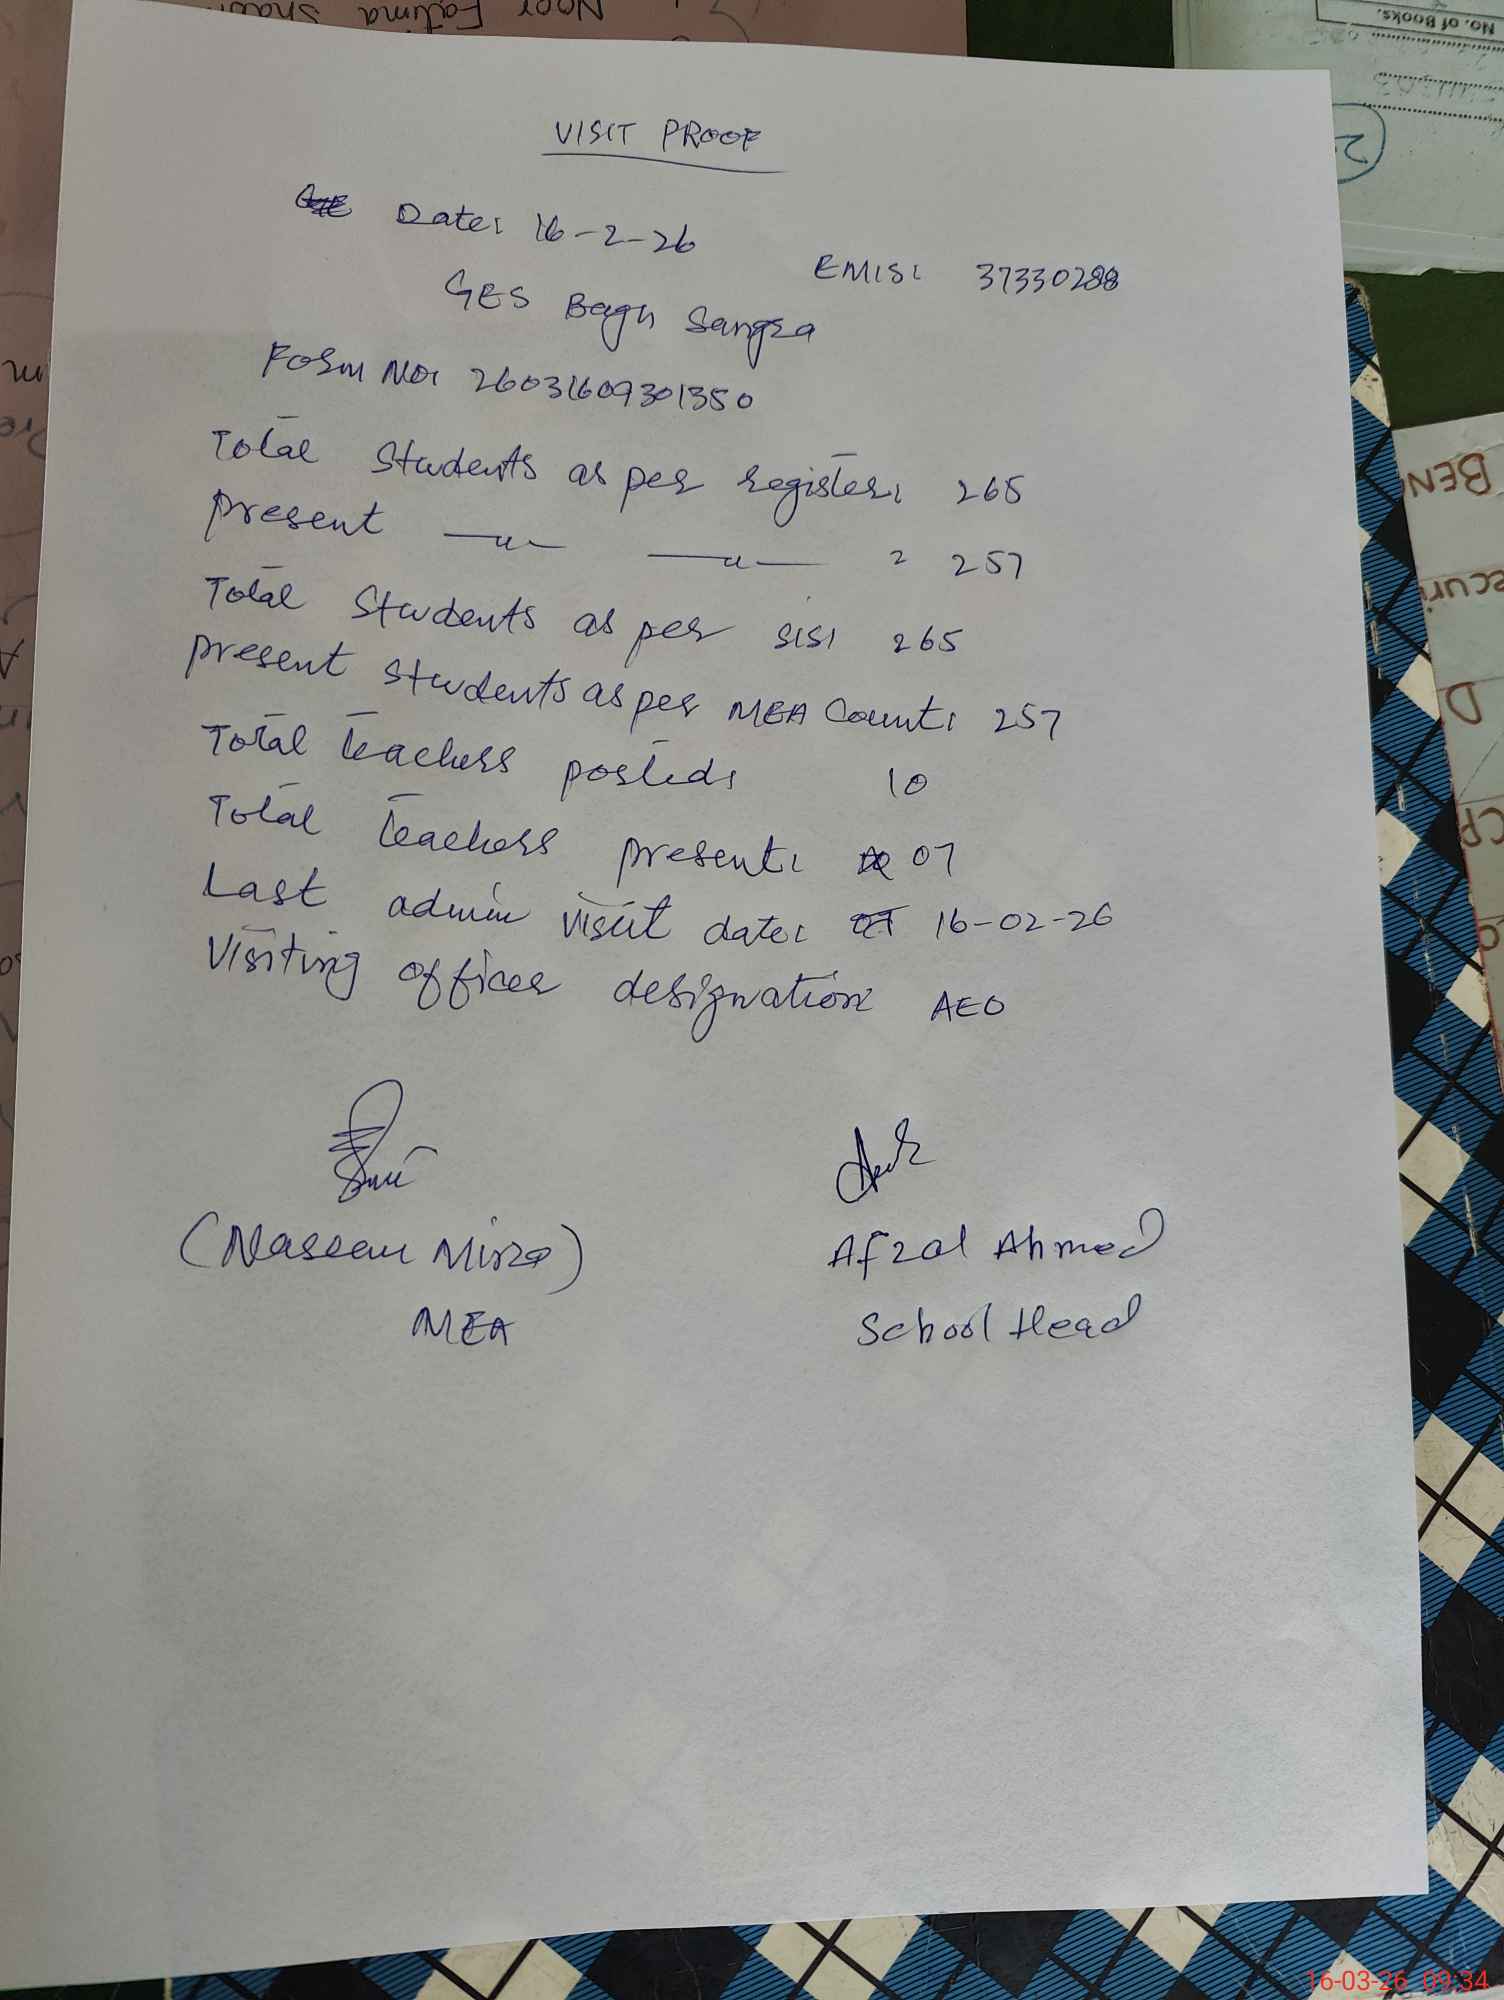 VISIT PROOF
Date: 16-2-26
EMIS: 37330288
GES Bagh Sangra
Form No: 26031609301350
Total Students as per register: 265
present —〃— —〃— : 257
Total Students as per SIS: 265
present students as per MEA Count: 257
Total teachers posted: 10
Total teachers present: 07
Last admin visit date: 16-02-26
Visiting officer designation: AEO
(Naseem Mirza)
MEA
Afzal Ahmed
School Head
Noor Fatima
No. of Books.
BEN
D
16-03-26 09:34